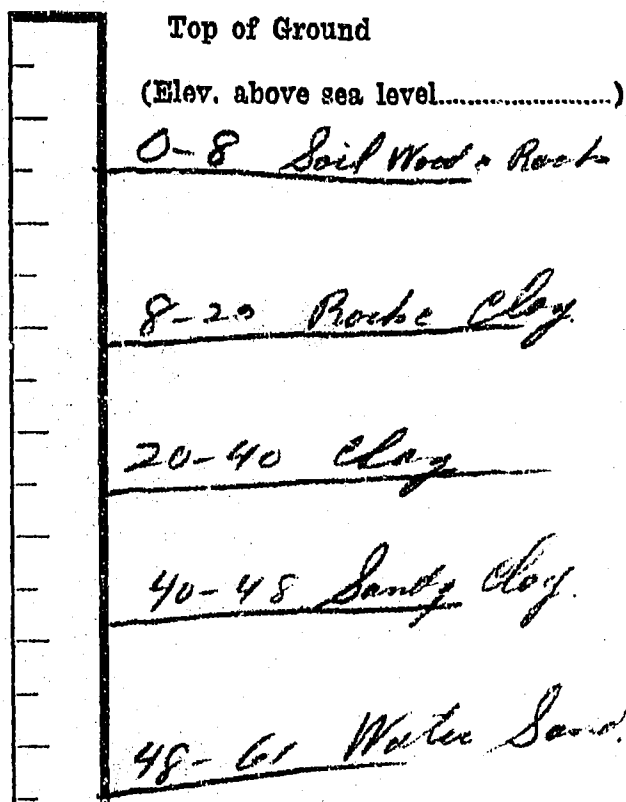 Top of Ground
(Elev. above sea level......................)
0-8 Soil Wood & Rock
8-20 Rocks Clay.
20-40 Clay
40-48 Sandy Clay.
48-61 Water Sand.